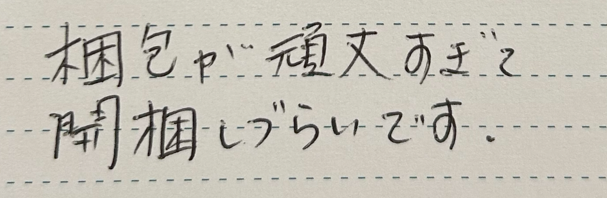 梱包が頑丈すぎて
開梱しづらいです.